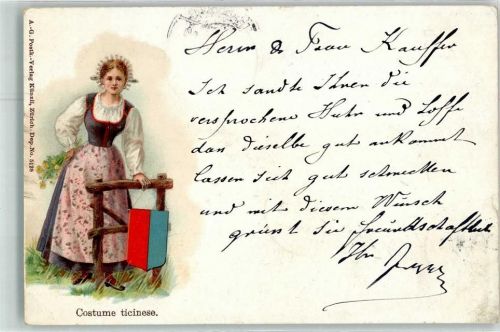 A.-G. Postk.-Verlag Künzli, Zürich. Dep. No. 5128
Herrn & Frau Kauffer
Ich sandte Ihnen die
versprochene Huhn und hoffe
das dieselbe gut ankommt
lassen sich gut schmecken
und mit diesem Wunsch
grüsst Sie freundschaftlich
Ihr
Costume ticinese.